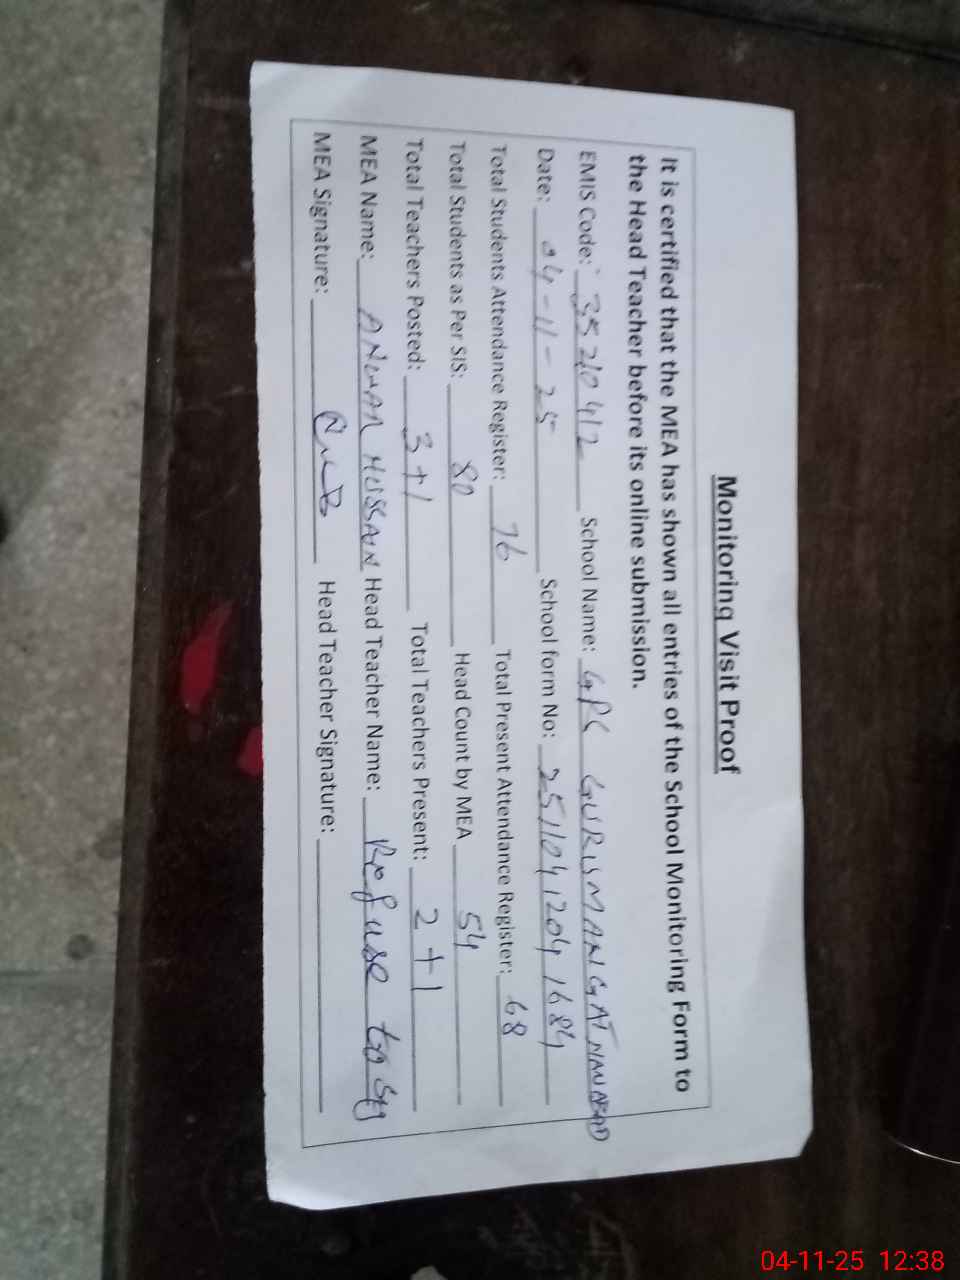 Monitoring Visit Proof
It is certified that the MEA has shown all entries of the School Monitoring Form to
the Head Teacher before its online submission.
EMIS Code: 35210412 School Name: GPS GURUMANGAT NANABAD
Date: 04-11-25 School form No: 25110412041684
Total Students Attendance Register: 76 Total Present Attendance Register: 68
Total Students as Per SIS: 80 Head Count by MEA 54
Total Teachers Posted: 3+1 Total Teachers Present: 2+1
MEA Name: ANWAR HUSSAIN Head Teacher Name: Refuse to
MEA Signature: Head Teacher Signature:
04-11-25 12:38